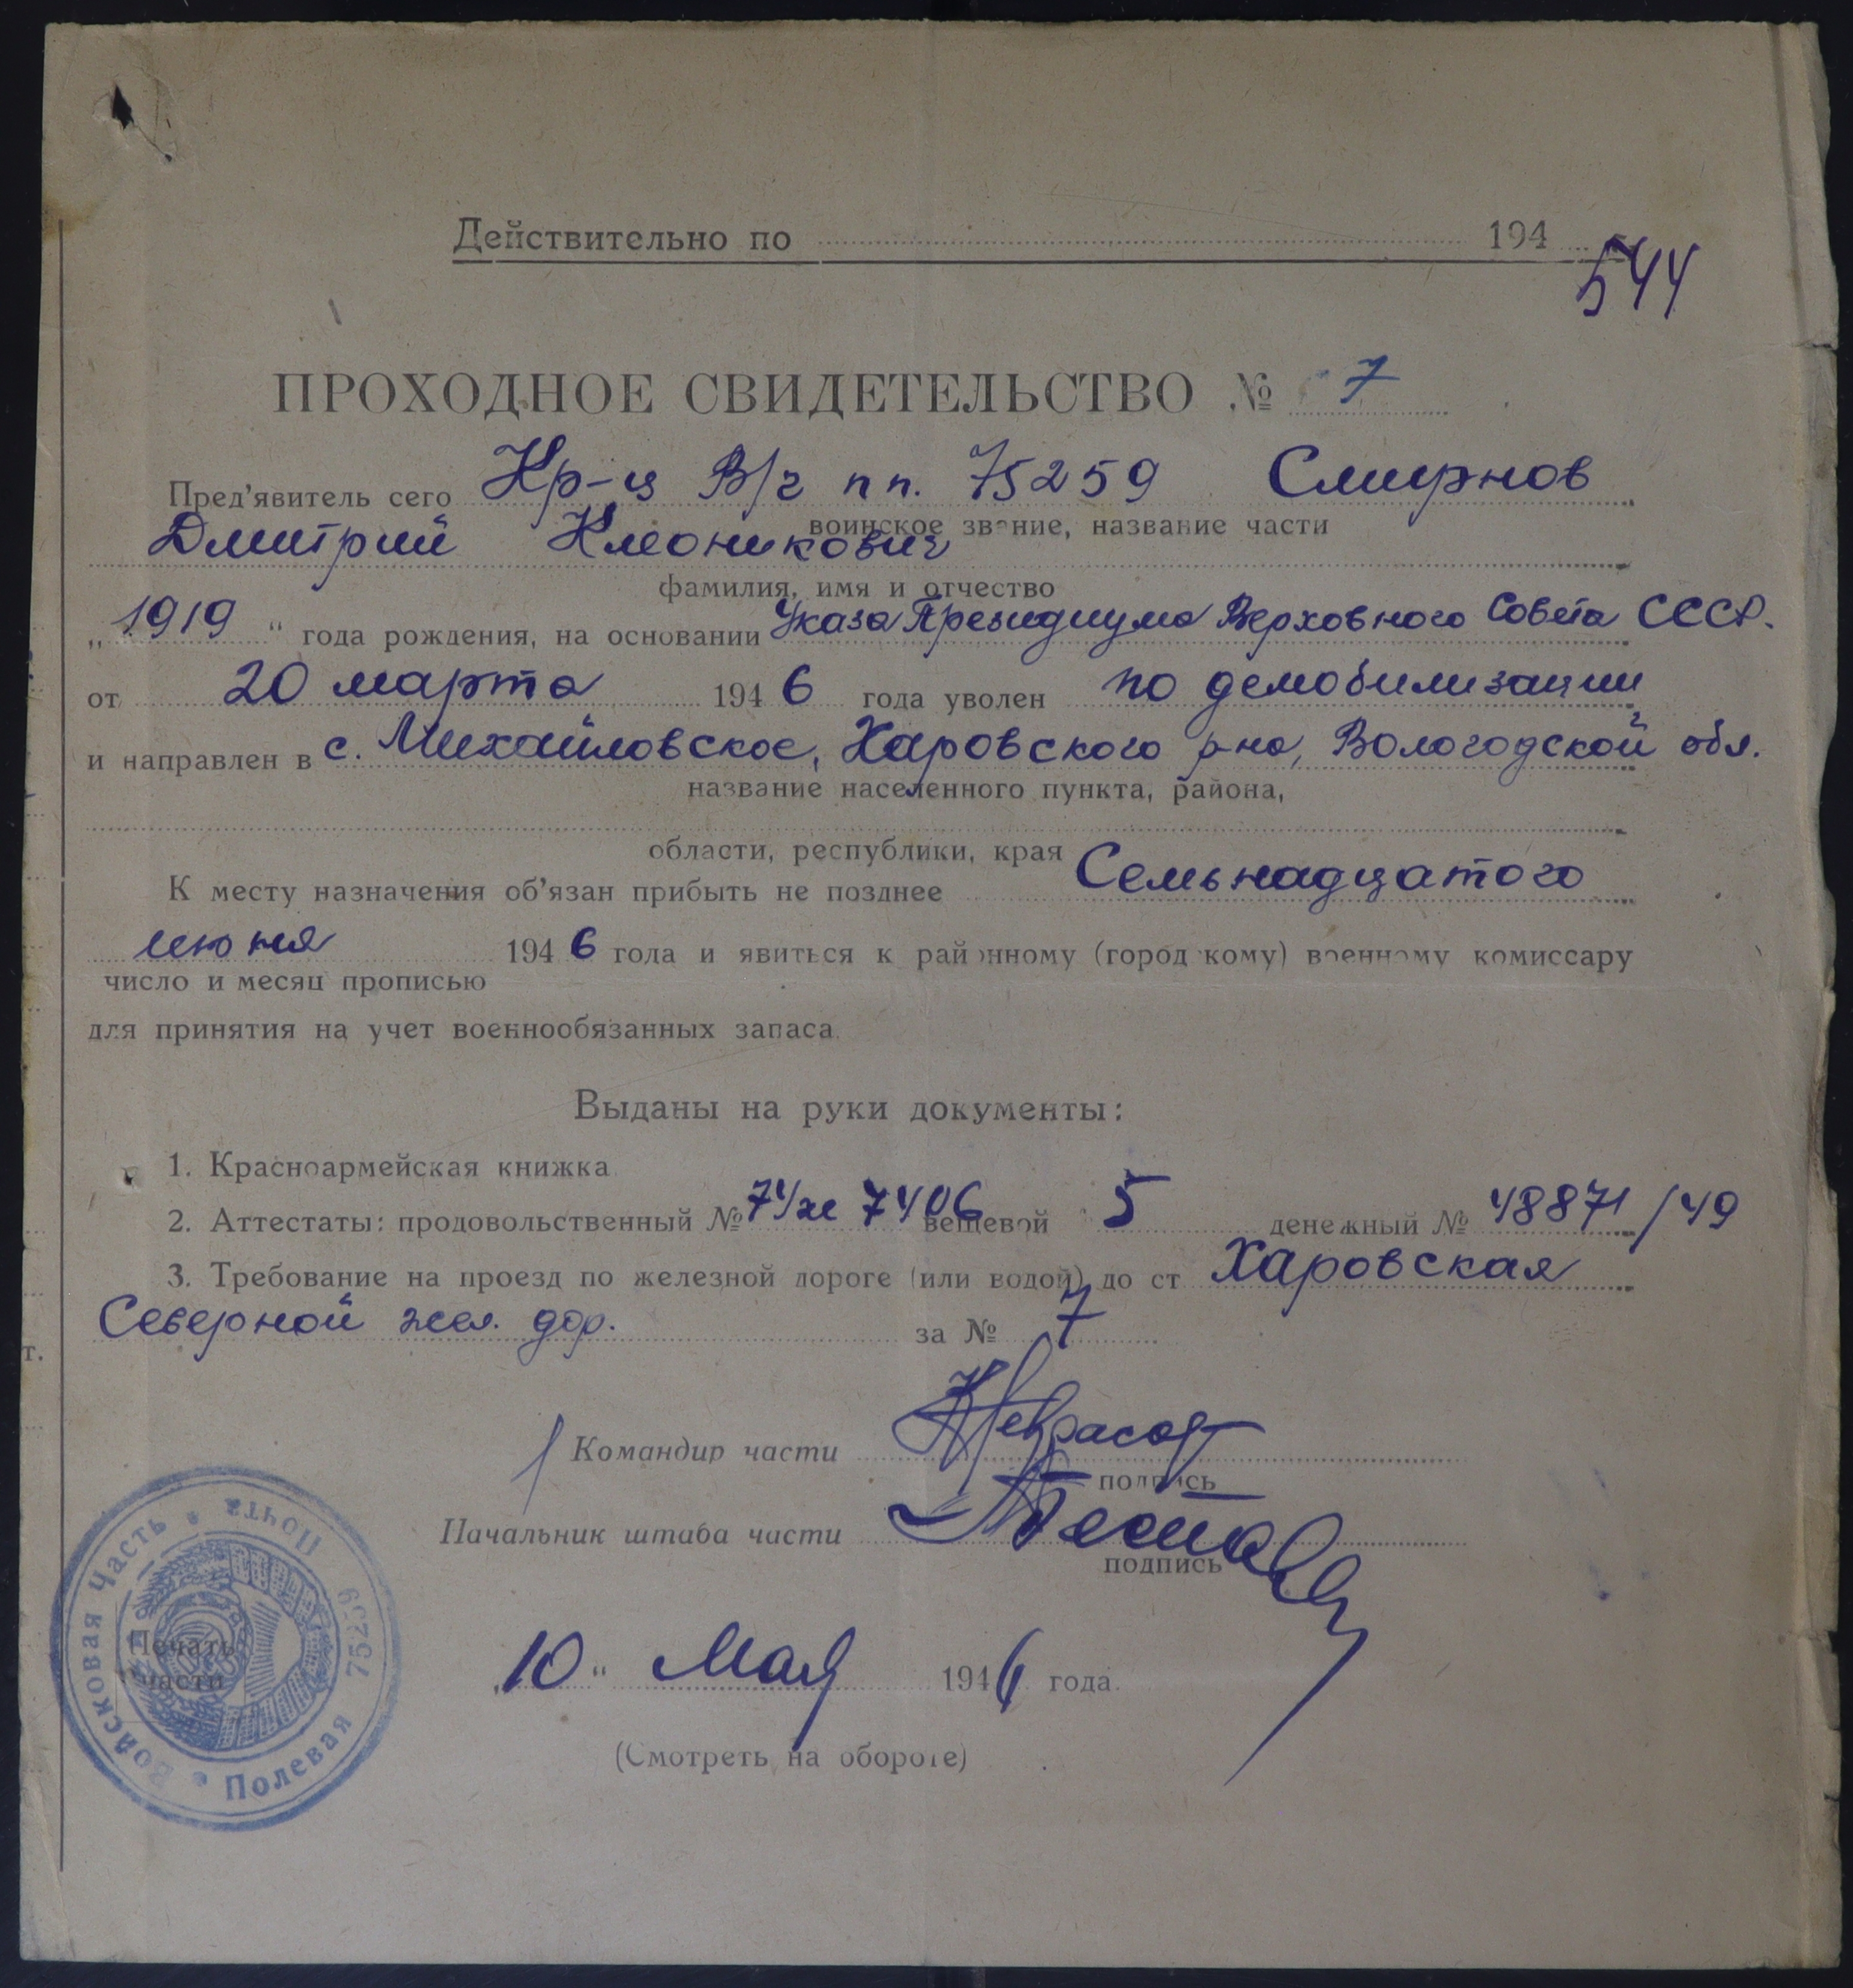 Действительно по 194
544
ПРОХОДНОЕ СВИДЕТЕЛЬСТВО № 7
Пред'явитель сего Кр-ц В/ч пп. 75259 Смирнов
воинское звание, название части
Дмитрий Клеоникович
фамилия, имя и отчество
„1919“ года рождения, на основании Указа Президиума Верховного Совета СССР.
от 20 марта 1946 года уволен по демобилизации
и направлен в с. Михайловское, Харовского р-на, Вологодской обл.
название населенного пункта, района,
области, республики, края
К месту назначения об'язан прибыть не позднее Семьнадцатого
июня 1946 года и явиться к районному (городскому) военному комиссару
число и месяц прописью
для принятия на учет военнообязанных запаса.
Выданы на руки документы:
1. Красноармейская книжка
2. Аттестаты: продовольственный № 7406 вещевой 5 денежный № 48871/49
3. Требование на проезд по железной дороге (или водой) до ст Харовская
Северной жел. дор. за № 7
Командир части Некрасов
подпись
Начальник штаба части
подпись
Печать части
Войсковая Часть * Полевая Почта * 75259
„10“ Мая 1946 года.
(Смотреть на обороте)
т.